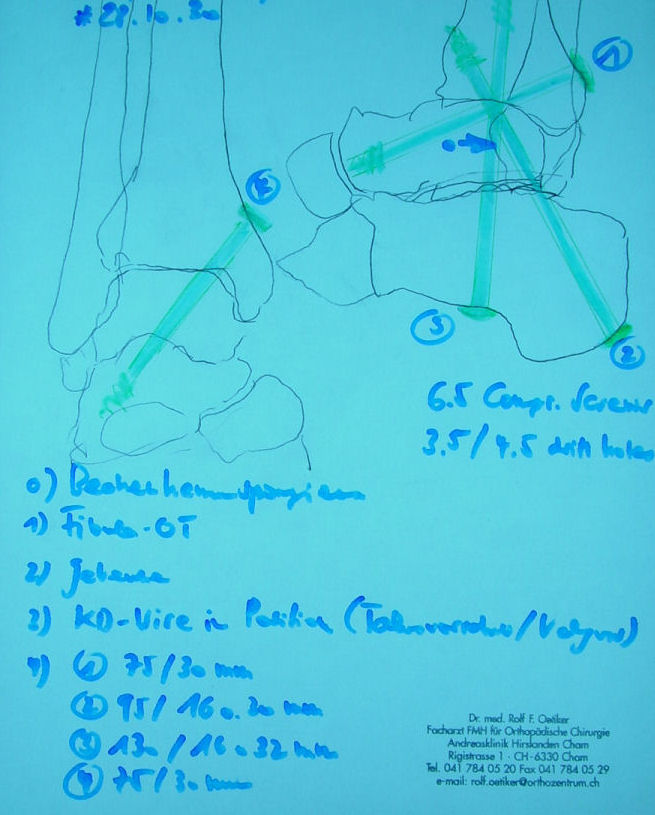 # 28.10.30
1
4
3
2
6.5 Compr. Screws
3.5/4.5 drill holes
0)
1) Fibula-OT
2) Gelenke
3) KD-Wire in Position (Talusvorschub/Valgus)
4) ① 75/30 mm
② 95/16 o. 30 mm
③ 130/16 o 32 mm
④ 75/30 mm
Dr. med. Rolf F. Oetiker
Facharzt FMH für Orthopädische Chirurgie
Andreasklinik Hirslanden Cham
Rigistrasse 1 · CH-6330 Cham
Tel. 041 784 05 20 Fax 041 784 05 29
e-mail: rolf.oetiker@orthozentrum.ch